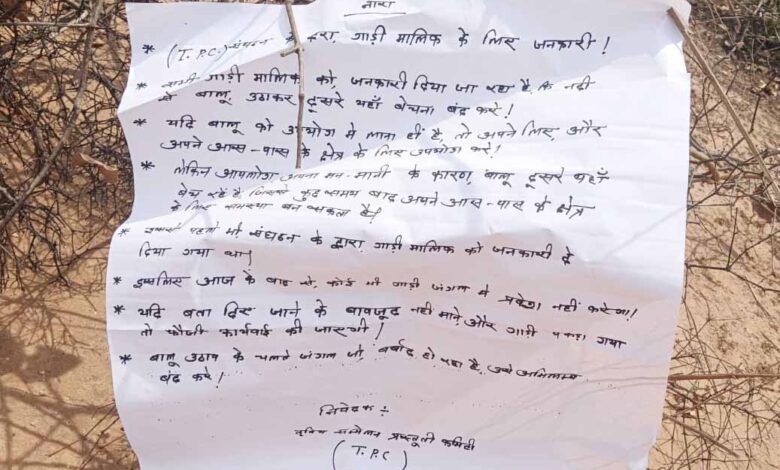 नारा
* (T.P.C.) संघठन के द्वारा, गाड़ी मालिक के लिए जानकारी!
* सभी गाड़ी मालिक को, जानकारी दिया जा रहा है, कि नदी
से बालू उठाकर दूसरे यहाँ बेचना बंद करे!
* यदि बालू को उपयोग मे लाना हीं है, तो अपने लिए, और
अपने आस-पास के क्षेत्र के लिए उपयोग करे!
* लेकिन आपलोग अपना मन-मानी के कारण, बालू दूसरे यहाँ
बेच रहे है, जिससे कुछ समय बाद अपने आस-पास के क्षेत्र
के लिए समस्या बन सकता है!
* इससे पहले भी संघठन के द्वारा गाड़ी मालिक को जानकारी दे
दिया गया था!
* इसलिए आज के बाद से, कोई भी गाड़ी जंगल मे प्रवेश नहीं करेगा!
* यदि बता दिए जाने के बावजूद नहीं माने और गाड़ी पकड़ा गया
तो फौजी कार्यवाई की जाएगी!
* बालू उठाव के चलते जंगल जो, बर्बाद हो रहा है, उसे अविलम्ब
बंद करे!
निवेदक :-
तृतिय सम्मेलन प्रस्तुती कमिटी
(T.P.C)